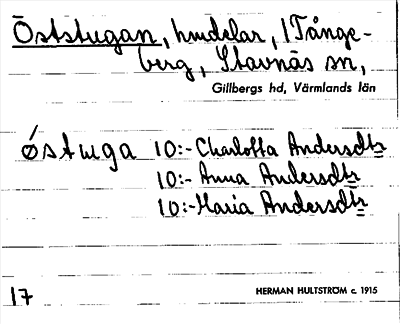 Öststugan, hmdelar, i Tånge-
berg, Stavnäs sn,
Gillbergs hd, Värmlands län
østuga 10:- Charlotta Andersdtr
10:- Anna Andersdtr
10:- Maria Andersdtr
17
HERMAN HULTSTRÖM c. 1915